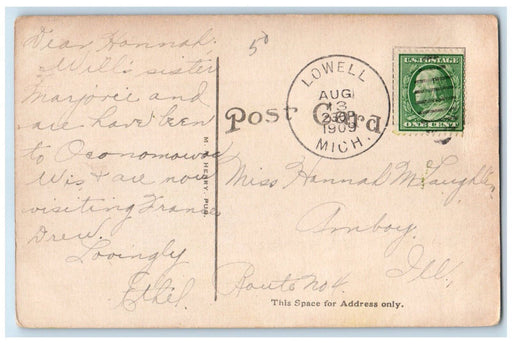 Dear Hannah:
Will's sister
Marjorie and
are have been
to Oconomowoc
Wis & are now
visiting Frances
Drew.
Lovingly
Ethel.
50
LOWELL
AUG
13
1909
MICH.
U.S. POSTAGE
ONE CENT
Post Card
M. HENRY, PUB.
Miss Hannah McLaughlin
Amboy,
Ill.
Route No 4.
This Space for Address only.